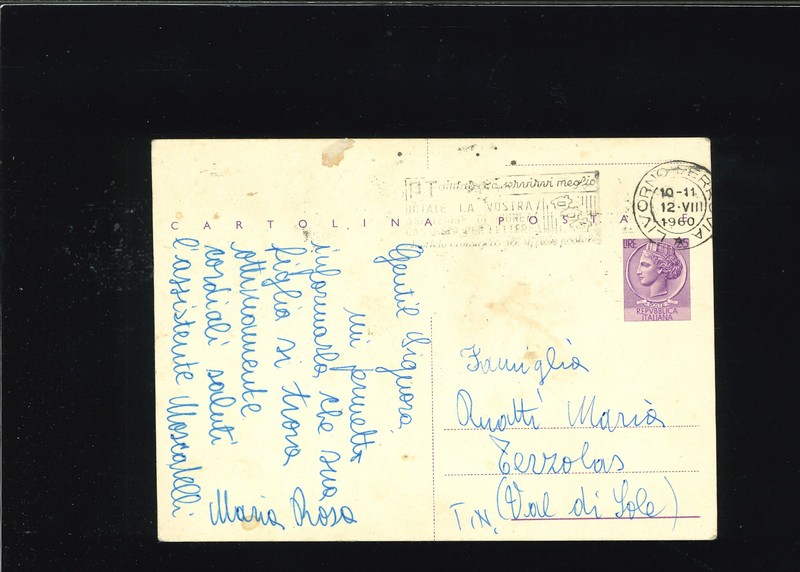 CARTOLINA POSTALE
PT aiutateci a servirvi meglio
DOTATE LA VOSTRA
ABITAZIONE DI
CASSETTA PER LETTERE
LIVORNO FERROVIA
10-11
12·VIII
1960
LIRE 25
POSTE
REPVBBLICA
ITALIANA
Gentil Signora,
mi permetto
informarla che sua
figlia si trova
ottimamente
cordiali saluti
l'assistente Moscatelli
Maria Rosa
Famiglia
Ruatti Maria
Terzolas
(Val di Sole)
TN.